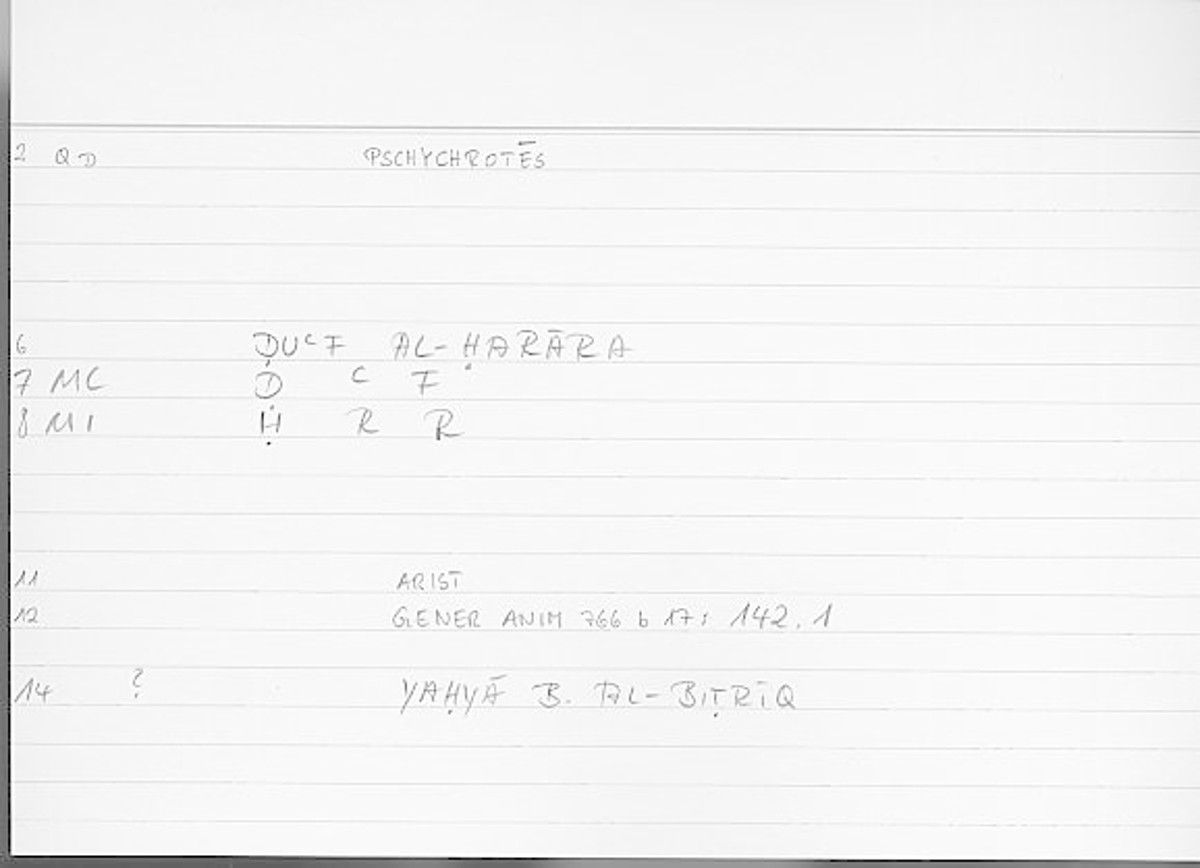 2 QD PSCHYCHROTĒS
6 ḌUᶜF AL-ḤARĀRA
7 MC Ḍ ᶜ F
8 M1 Ḥ R R
11 ARIST
12 GENER ANIM 766 b 17: 142,1
14 ? YAḤYĀ B. AL-BIṬRĪQ